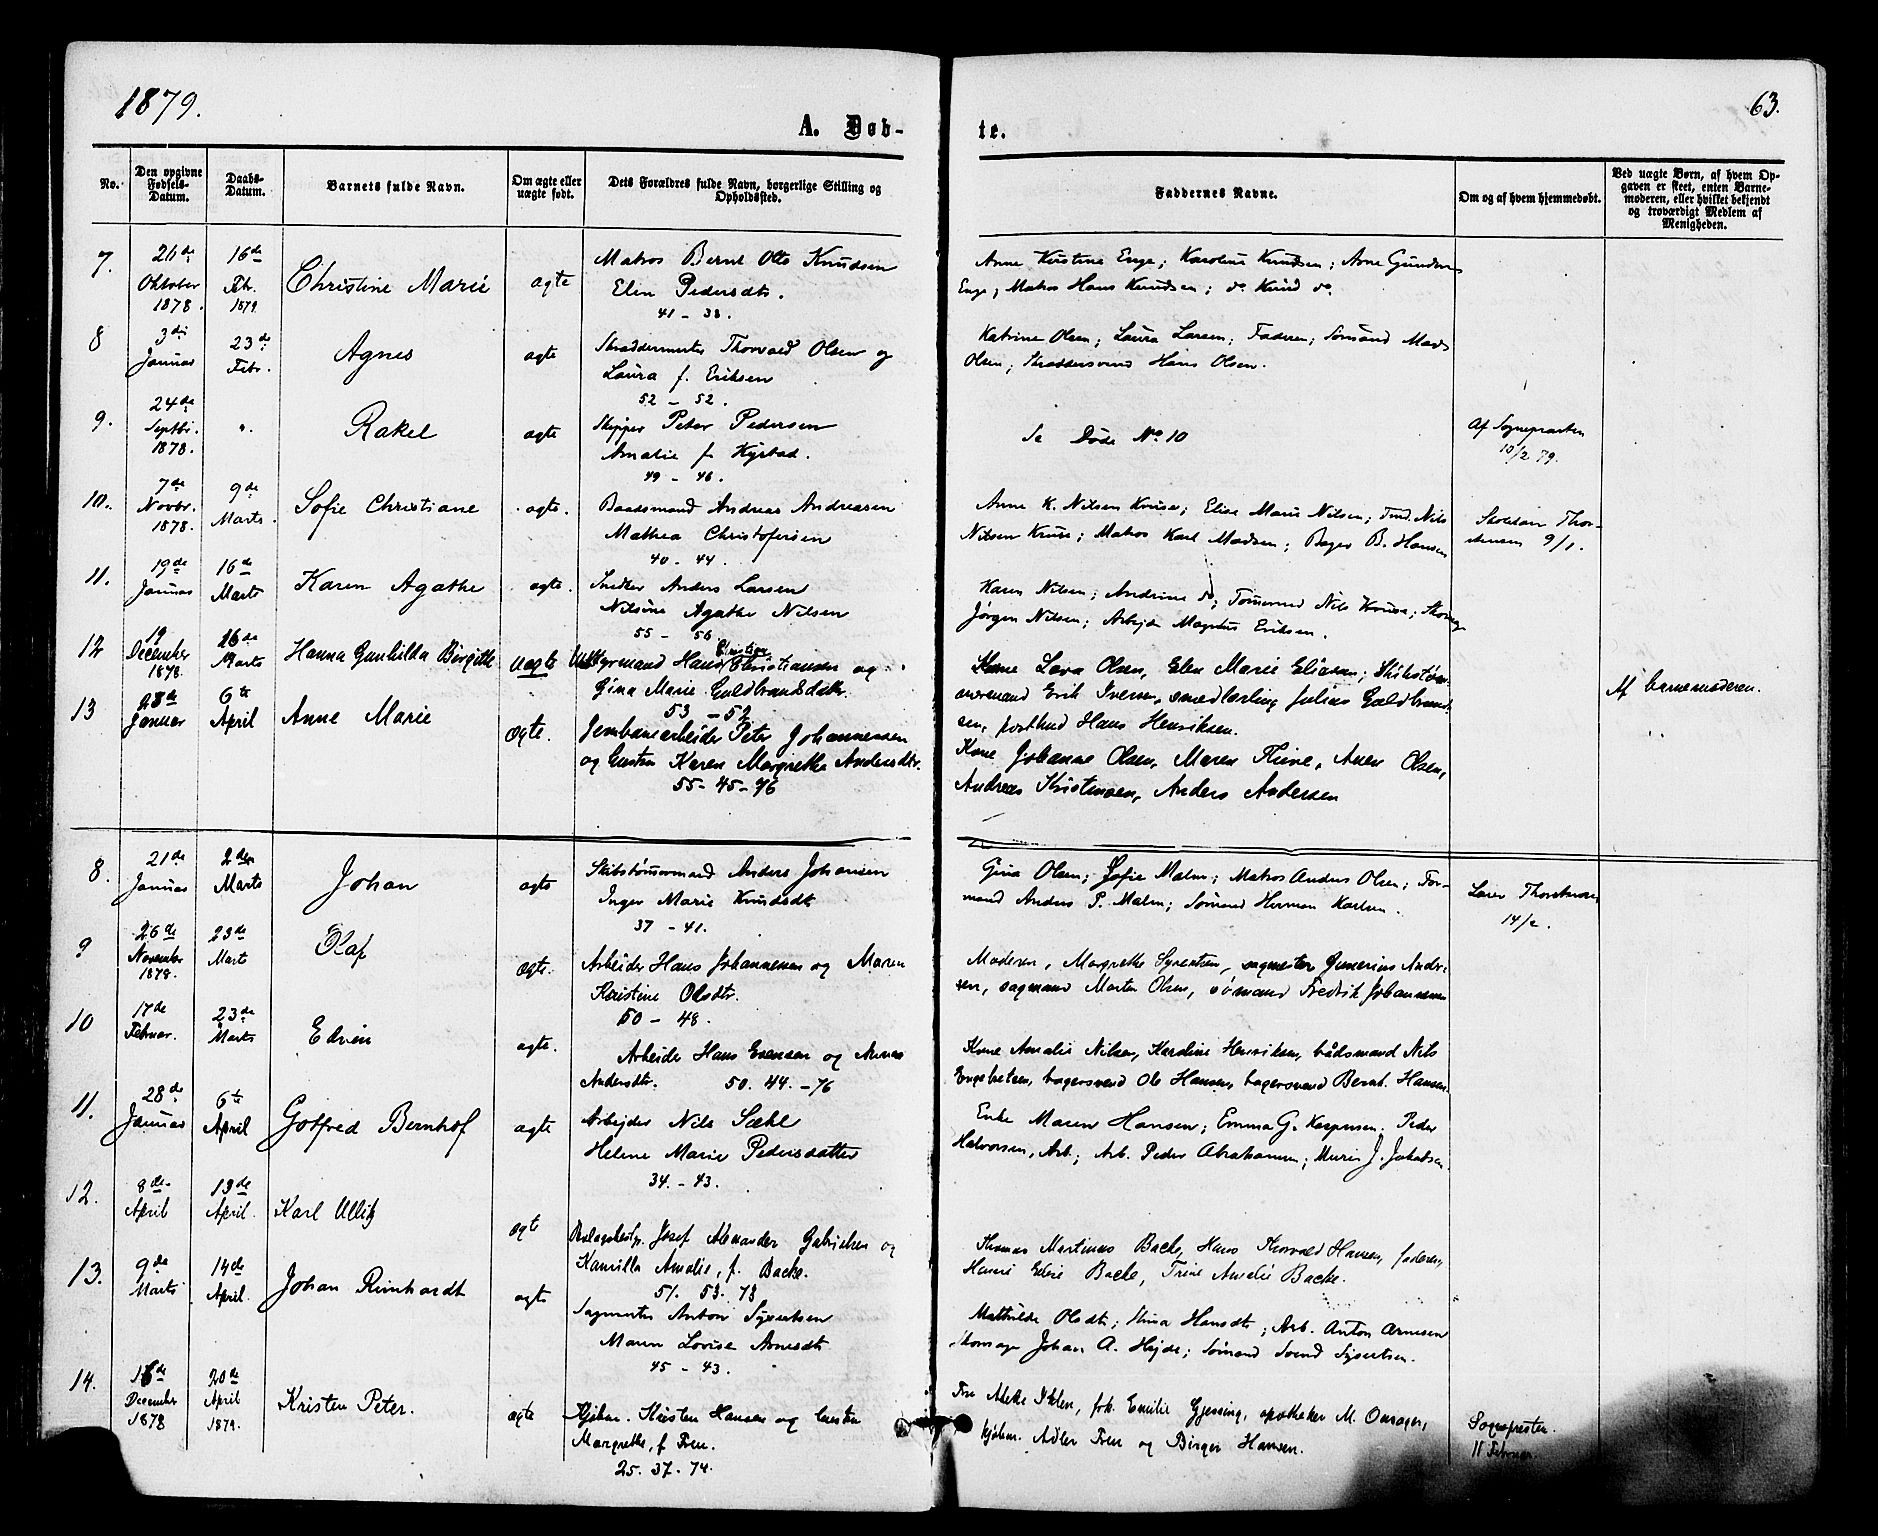 1879.
63.
A. Døb-
te.
No.
Den opgivne Fødsels-Datum.
Daabs-Datum.
Barnets fulde Navn.
Om ægte eller uægte født.
Dets Forældres fulde Navn, borgerlige Stilling og Opholdssted.
Faddernes Navne.
Om og af hvem hjemmedøbt.
Ved uægte Børn, af hvem Op-
gaven er skeet, enten Barne-
moderen, eller hvilket bekjendt
og troværdigt Medlem af
Menigheden.
7. 26de Oktober 1878. 16de Feb. 1879 Christine Marie ægte
Matros Bernt Otto Knudsen
Elen Pedersdtr.
41 - 38.
Anne Kirstine Enge; Karoline Knudsen; Anne Gundersen
Enge; Matros Hans Knudsen; do Knud do.
8 3die Januar 23de Febr. Agnes ægte
Skræddermester Thorvald Olsen og
Laura f. Eriksen
52 - 52.
Katrine Olsen; Laura Larsen; Faderen; Sømand Mads
Olsen; Skræddersvend Hans Olsen.
9. 24de Septbr. 1878. Rakel ægte
Skipper Peter Pedersen
Amalie f.
49 - 46.
Se Døde No 10
Af Sognepræsten
10/2 79.
10. 7de Novbr. 1878. 9de Marts Sofie Christiane ægte.
Baadsmand Andreas Andreasen
Mathea Christofersen
40 - 44.
Anne K. Nilsen Kruse; Elise Marie Nilsen; Tmd. Nils
Nilsen Kruse; Matros Karl Madsen; Bager B. Hansen
Thor-
stensen 9/1.
11. 19de Januar 16de Marts Karen Agathe ægte.
Snedker Anders Larsen
Nilsine Agathe Nilsen
55 - 56.
Karen Nilsen; Andrine do; Tømermd Nils Kruse;
Jørgen Nilsen; Arbejder Magnus Eriksen.
12 19 December 1878. 16de Marts Hanna Gunhilda Birgitte uægte
Styrmand Hans Christian Christiansen og
Gina Marie Guldbrandsdatter.
53 - 52
Kone Lava Olsen, Elen Marie Eliasen; Skibstøm-
mermand Erik Iversen, smedlærling Julius Guldbrand-
sen, Hans Henriksen.
Af barnemoderen.
13 28de Januar 6te April Anne Marie ægte.
Jernbanearbeider Peter Johannessen
og hustru Karen Margrethe Andersdtr.
55 - 45 - 76
Kone Johanne Olsen, Maren Olsen,
Andreas Kristensen, Anders Andersen
8. 21de Januar 2den Marts Johan ægte
Skibstømermand Anders Johansen
Inger Marie Knudsdt
37 - 41.
Gina Olsen; Sofie Malm; Matros Anders Olsen; For-
mand Anders P. Malm; Sømand Herman Karlsen.
Lærer Thorstensen
14/2.
9 26de November 1878. 23de Marts Olaf ægte.
Arbeider Hans Johannesen og Maren
Kristine Olsdtr.
50 - 48.
Moderen, Margrethe Syvertsen, sagmester Gunerius Ander-
sen, sagmand Morten Olsen, sømand Fredrik Johannesen
10 17de Februar. 23de Marts Edvin ægte.
Arbeider Hans Evensen og
Andersdtr. 50. 44. - 76
Kone Amalie Nilsen, Karoline Henriksen, bådsmand Nils
Engebretsen, bagersvend Ole Hansen, bagersvend Bernh. Hansen.
11. 28de Januar 6te April Gotfred Bernhof ægte
Arbejder Nils Sæhl
Helene Marie Pedersdatter
34. - 43.
Enke Maren Hansen; Emma G. Kaspersen. Peder
Halvorsen, Arb; Arb. Peder Abrahamsen; Murer J. Jakobsen.
12. 8de April 13de April. Karl Ullik ægte
Josef Alexander Gabrielsen og
Kamilla Amalie, f. Backe.
51. 53. 73
Thomas Martinus Backe, Hans Thorvald Hansen, faderen,
Hanne Edvie Backe, Trine Amalie Backe.
13. 9de Marts 14de April. Johan Reinhardt ægte
Sagmester Anton Syvertsen
Maren Lovise Arnesdt
45 - 43.
Mathilde Olsdt; Stina Hansdt; Arb. Anton Arnesen
Skomager Johan A. Højde; Sømand Svend Syvertsen.
14. 16de December 1878 20de April 1879. Kristen Peter. ægte
Kjøbm. Kristen Hansen og hustru
Margrethe, f. Fren.
25. 37. 74.
Fru frk. Emilie Gjessing, apotheker M. Omsager,
kjøbm. Adler Fren og Birger Hansen.
Sognepresten.
11 Februar.